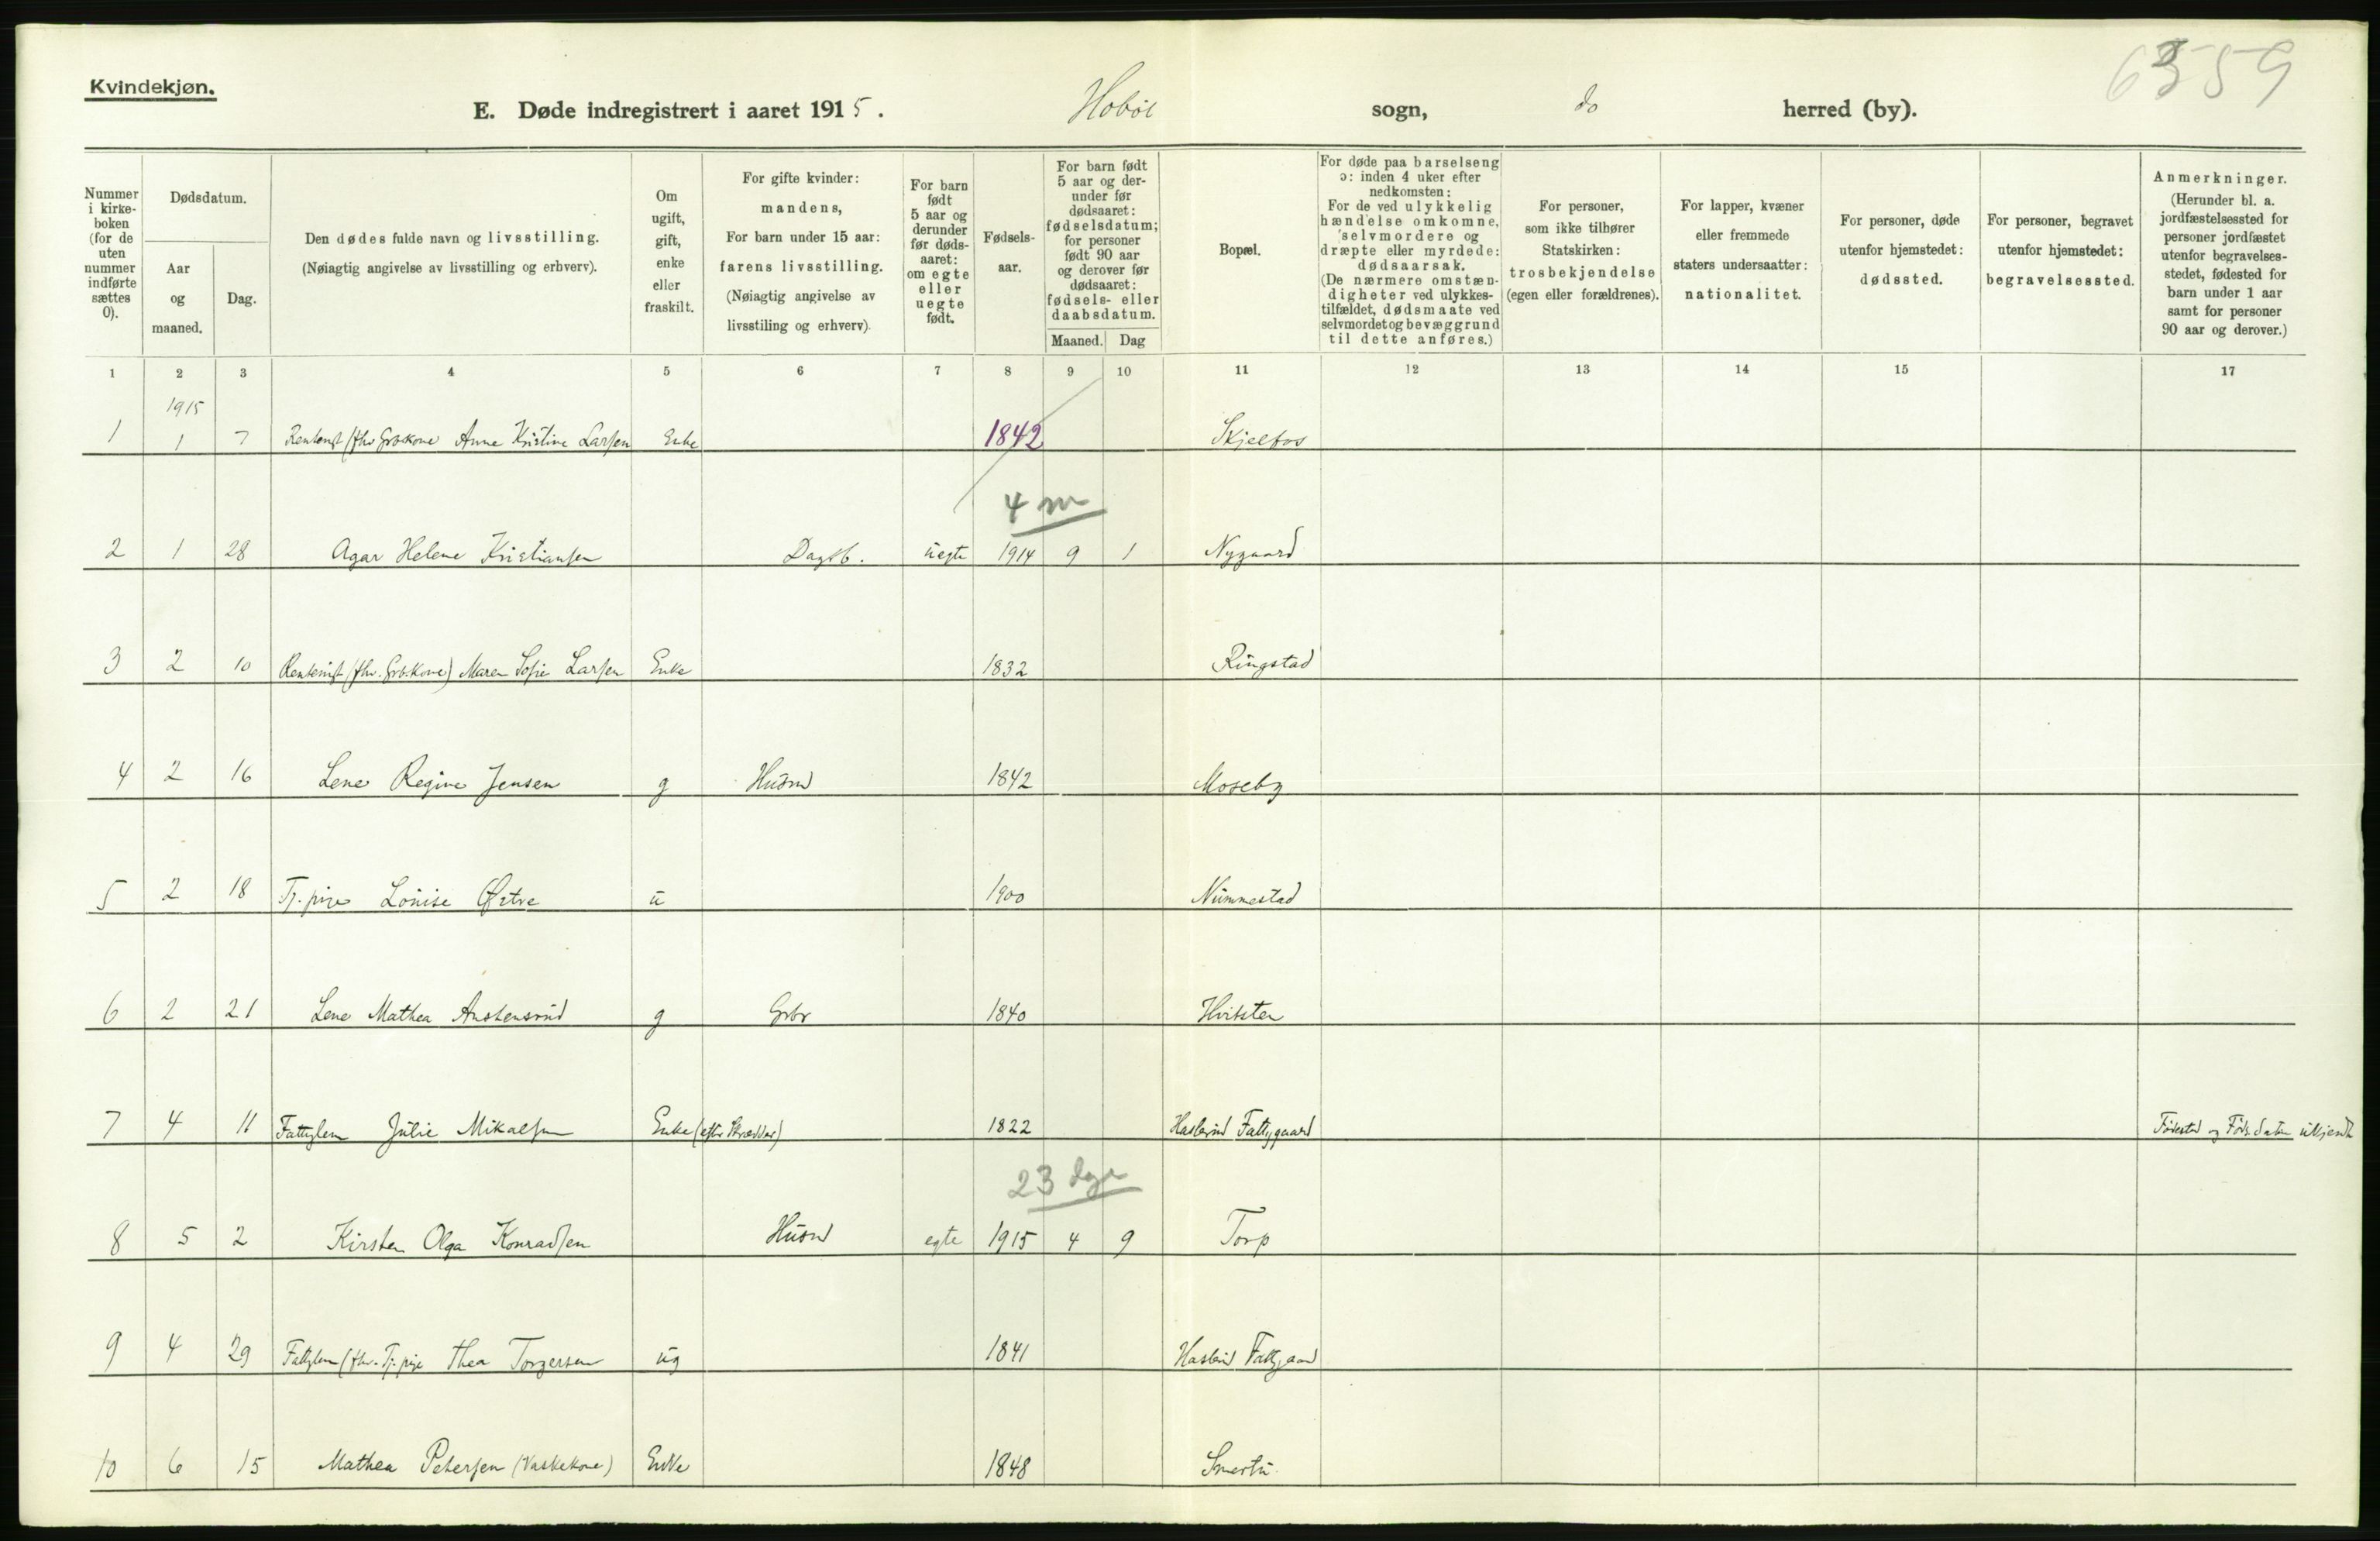 Kvindekjøn.
E. Døde indregistrert i aaret 1915. Hobøl sogn, do herred (by).
Nummer i kirke-boken (for de uten nummer indførte sættes 0).
Dødsdatum.
Aar og maaned.
Dag.
Den dødes fulde navn og livsstilling.
(Nøiagtig angivelse av livsstilling og erhverv).
Om ugift, gift, enke eller fraskilt.
For gifte kvinder: mandens,
For barn under 15 aar: farens livsstilling.
(Nøiagtig angivelse av livsstiling og erhverv).
For barn født 5 aar og derunder før døds-aaret: om egte eller uegte født.
Fødsels-aar.
For barn født 5 aar og der-under før dødsaaret: fødselsdatum; for personer født 90 aar og derover før dødsaaret: fødsels- eller daabsdatum.
Maaned. Dag
Bopæl.
For døde paa barselseng ɔ: inden 4 uker efter nedkomsten:
For de ved ulykkelig hændelse omkomne, selvmordere og dræpte eller myrdede: dødsaarsak.
(De nærmere omstæn-digheter ved ulykkes-tilfældet, dødsmaate ved selvmordet og bevæggrund til dette anføres.)
For personer, som ikke tilhører Statskirken: trosbekjendelse (egen eller forældrenes).
For lapper, kvæner eller fremmede staters undersaatter: nationalitet.
For personer, døde utenfor hjemstedet: dødssted.
For personer, begravet utenfor hjemstedet: begravelsessted.
Anmerkninger.
(Herunder bl. a. jordfæstelsessted for personer jordfæstet utenfor begravelses-stedet, fødested for barn under 1 aar samt for personer 90 aar og derover.)
1 2 3 4 5 6 7 8 9 10 11 12 13 14 15 17
1915
1 1 7 Rentenist (fhv Grbkone Anne Kristine Larsen Enke 1842 Skjelfos
4 m
2 1 28 Agar Helene Kristiansen Dagb. uegte 1914 9 1 Nygaard
3 2 10 Rentenist (fhv. Grbkone) Maren Sofie Larsen Enke 1832 Ringstad
4 2 16 Lene Regine Jensen g Husm 1842 Moseby
5 2 18 Tj.pige Louise Østre u 1900 Nummestad
6 2 21 Lene Mathea Austensrud g Grbr 1840 Hvitsten
7 4 11 Fattiglem Julie Mikalsen Enke (efter Skrædder) 1822 Haslerud Fattiggaard Fødested og Føds.datum ukjendt
23 dage
8 5 2 Kirsten Olga Konradsen Husm egte 1915 4 9 Torp
9 4 29 Fattiglem (fhv. Tj. pige Thea Torgersen ug 1841 Haslerud Fattiggaard
10 6 15 Mathea Petersen (Vaskekone) Enke 1848